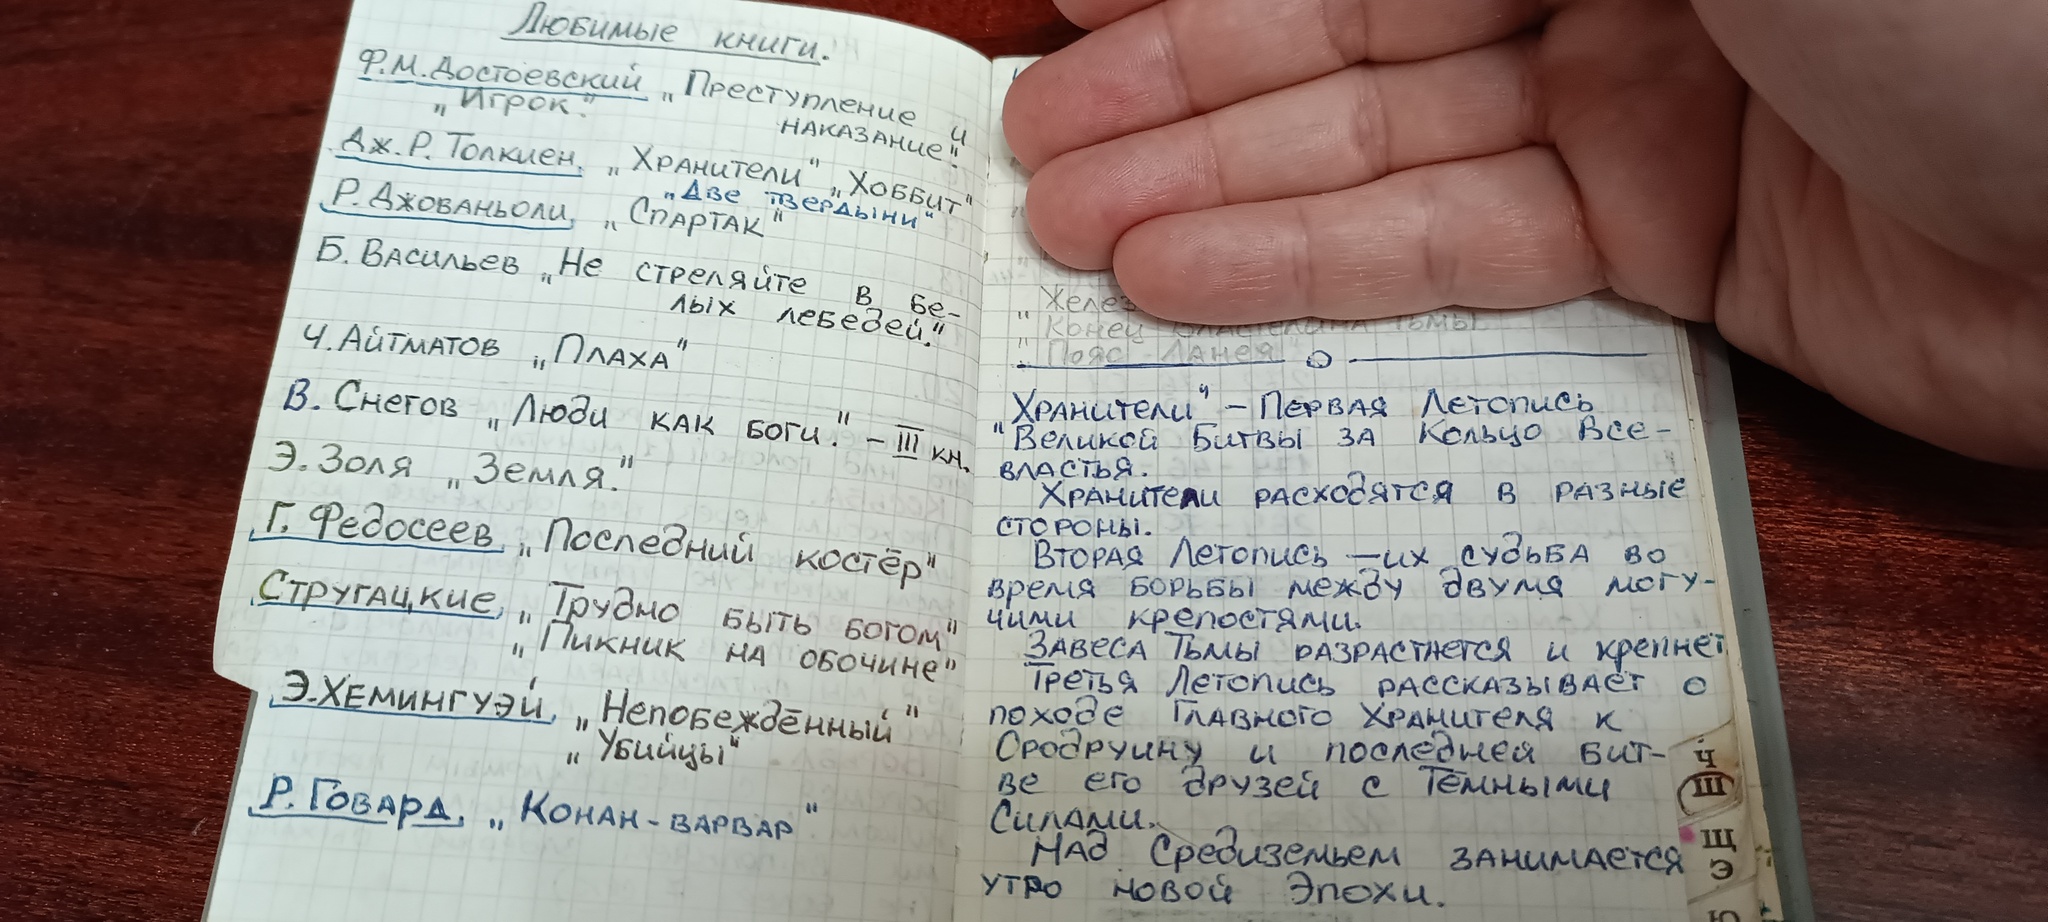 Любимые книги.
Ф.М.Достоевский „Преступление и
наказание".
„Игрок."
Дж.Р.Толкиен, „Хранители" „Хоббит"
„Две твердыни"
Р.Джованьоли, „Спартак"
Б.Васильев „Не стреляйте в бе-
лых лебедей."
Ч.Айтматов „Плаха"
В.Снегов „Люди как боги." – III кн.
Э.Золя „Земля."
Г.Федосеев „Последний костёр"
Стругацкие, „Трудно быть богом"
„Пикник на обочине"
Э.Хемингуэй, „Непобеждённый"
„Убийцы"
Р.Говард, „Конан-варвар"
„Конец Властелина тьмы
„Пояс Ланея"
„Хранители" – Первая Летопись
"Великой Битвы за Кольцо Все-
властья.
Хранители расходятся в разные
стороны.
Вторая Летопись – их судьба во
время борьбы между двумя могу-
чими крепостями.
Завеса Тьмы разрастается и крепнет
Третья Летопись рассказывает о
походе Главного Хранителя к
Сродруину и последней бит-
ве его друзей с Тёмными
Силами.
Над Средиземьем занимается
утро новой Эпохи.
Ч
Ш
Щ
Э
Ю